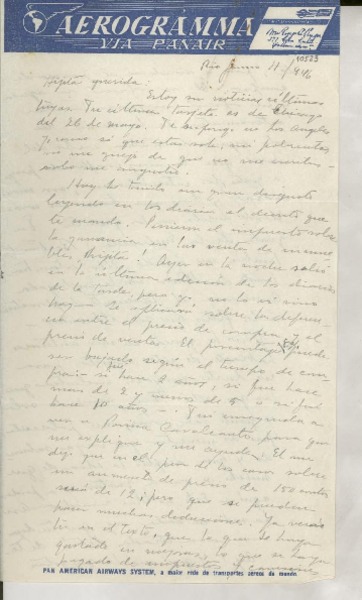 AEROGRAMMA
VIA PANAIR
Rio Junio 11/946
querida.
Estoy sin noticias últimas
tuyas. Tu última tarjeta es de Chicago
del 26 de mayo. Te supongo en los Angeles
y como sé que estás sola, mi pobrecita,
no me quejo de que no me escribas
solo me angustio.
Hoy he tenido un gran disgusto
leyendo en los diarios el decreto que
te mando. Pusieron el impuesto sobre
la ganancia en las ventas de inmue
bles, Ayer en la noche salió
en la última edición de los diarios
de la tarde, pero yo no lo vi sino
hoy. Se aplicará sobre la diferen
cia entre el precio de compra y el
precio de venta. El porcentaje puede
ser según el tiempo de com
pra: si hace 2 años, si fue hace
más de 2 y menos de 5 o si fué
hace 10 años.
a ver a Cavalcanti, para que
me explique y me ayude. El me
dijo que en el peor de los casos sobre
un aumento de precio de 150 contos
sería de 12, pero que se pueden
hacer muchas deducciones. Ya verás
tú en el texto, que lo que se haya
gastado en mejoras, lo que se haya
pagado de impuestos y comisión
PAN AMERICAN AIRWAYS SYSTEM, a maior rede de transportes aéreos do mundo.